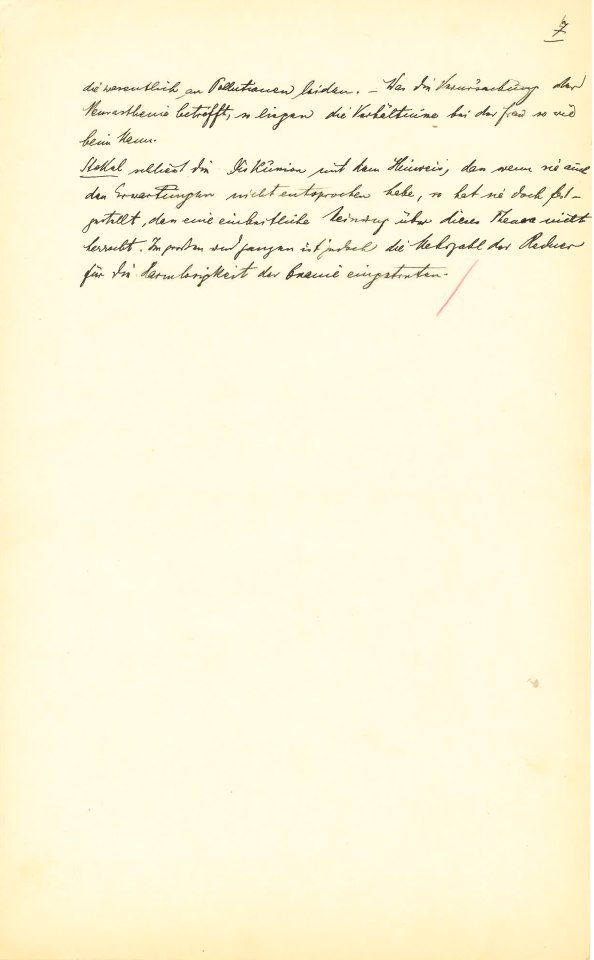 7
die wesentlich an Pollutionen leiden. – Was die Verursachung der
Neurasthenie betrifft, so liegen die Verhältnisse bei der Frau so wie
beim Mann.
Stekel schliesst die Diskussion mit dem Hinweis, dass wenn sie auch
den Erwartungen nicht entsprochen habe, so hat sie doch fest-
gestellt, dass eine einheitliche Meinung über dieses Thema nicht
herrscht. Im grossen und ganzen ist jedoch die Mehrzahl der Redner
für die Harmlosigkeit der Onanie eingetreten.